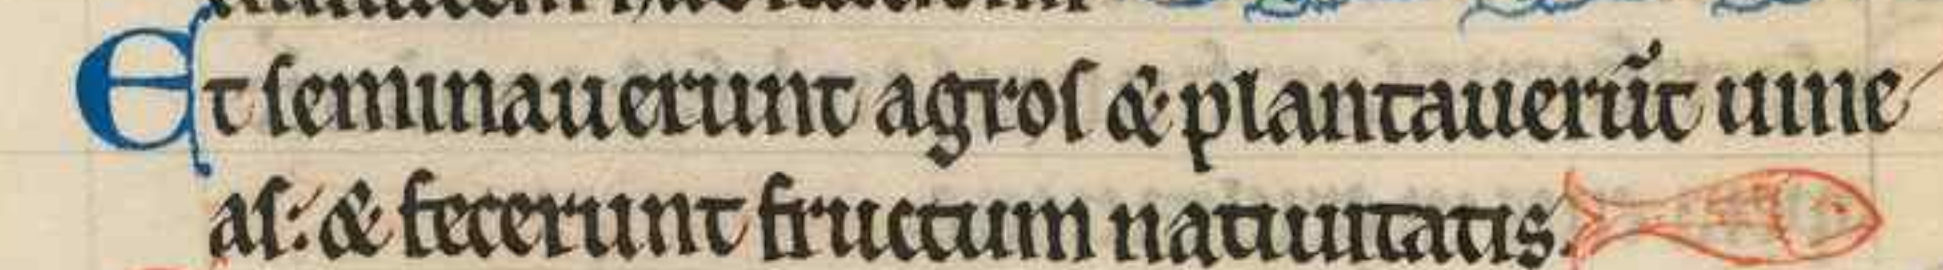 Et seminauerunt agros & plantauerūt uine
as: & fecerunt fructum natiuitatis.